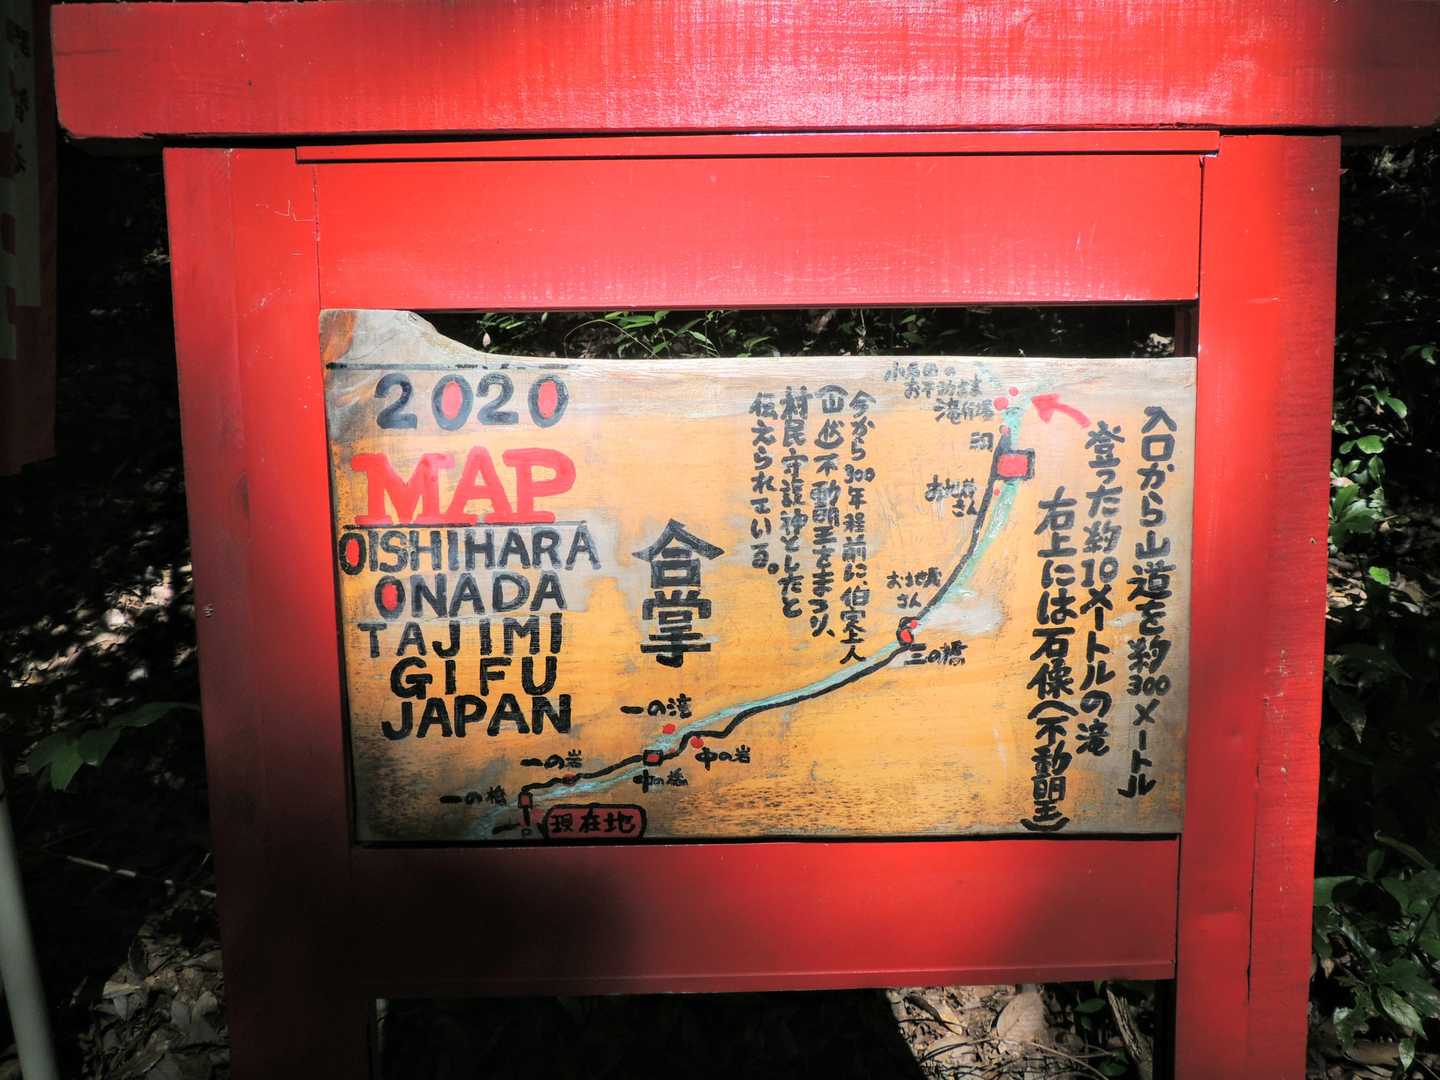 2020
MAP
OISHIHARA
ONADA
TAJIMI
GIFU
JAPAN
合掌
入口から山道を約300メートル
登った約10メートルの滝
右上には石像(不動明王)
今から300年程前に、伯宗上人
不動明王をまつり、
村民守護神としたと
伝えられている。
滝行場
さん
さん
三の橋
一の滝
中の岩
一の岩
中の橋
一の橋
現在地
P